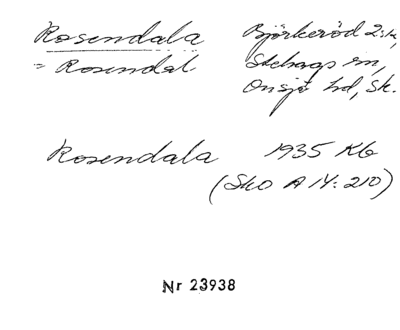 Rosendala Björkeröd 2:2,
= Rosendal Stehags sn,
Onsjö hd, Sk.
Rosendala 1935 Kb
(Sko A 14: 210)
Nr 23938